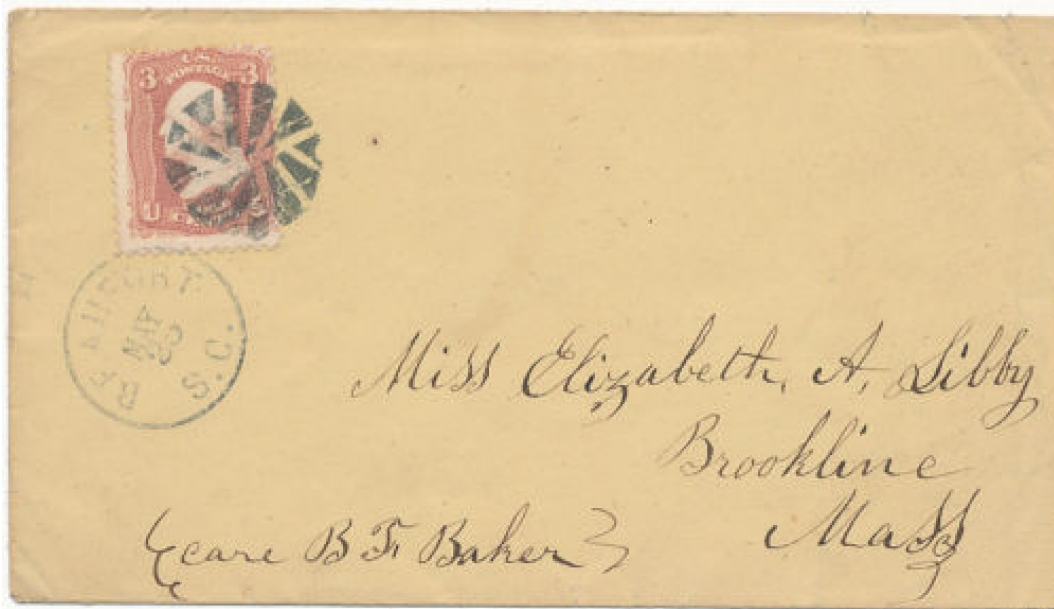 3 U.S. 3
POSTAGE
U
BEAUFORT S.C.
MAY
Miss Elizabeth, A, Libby
Brookline
Mass
(care B F. Baker)